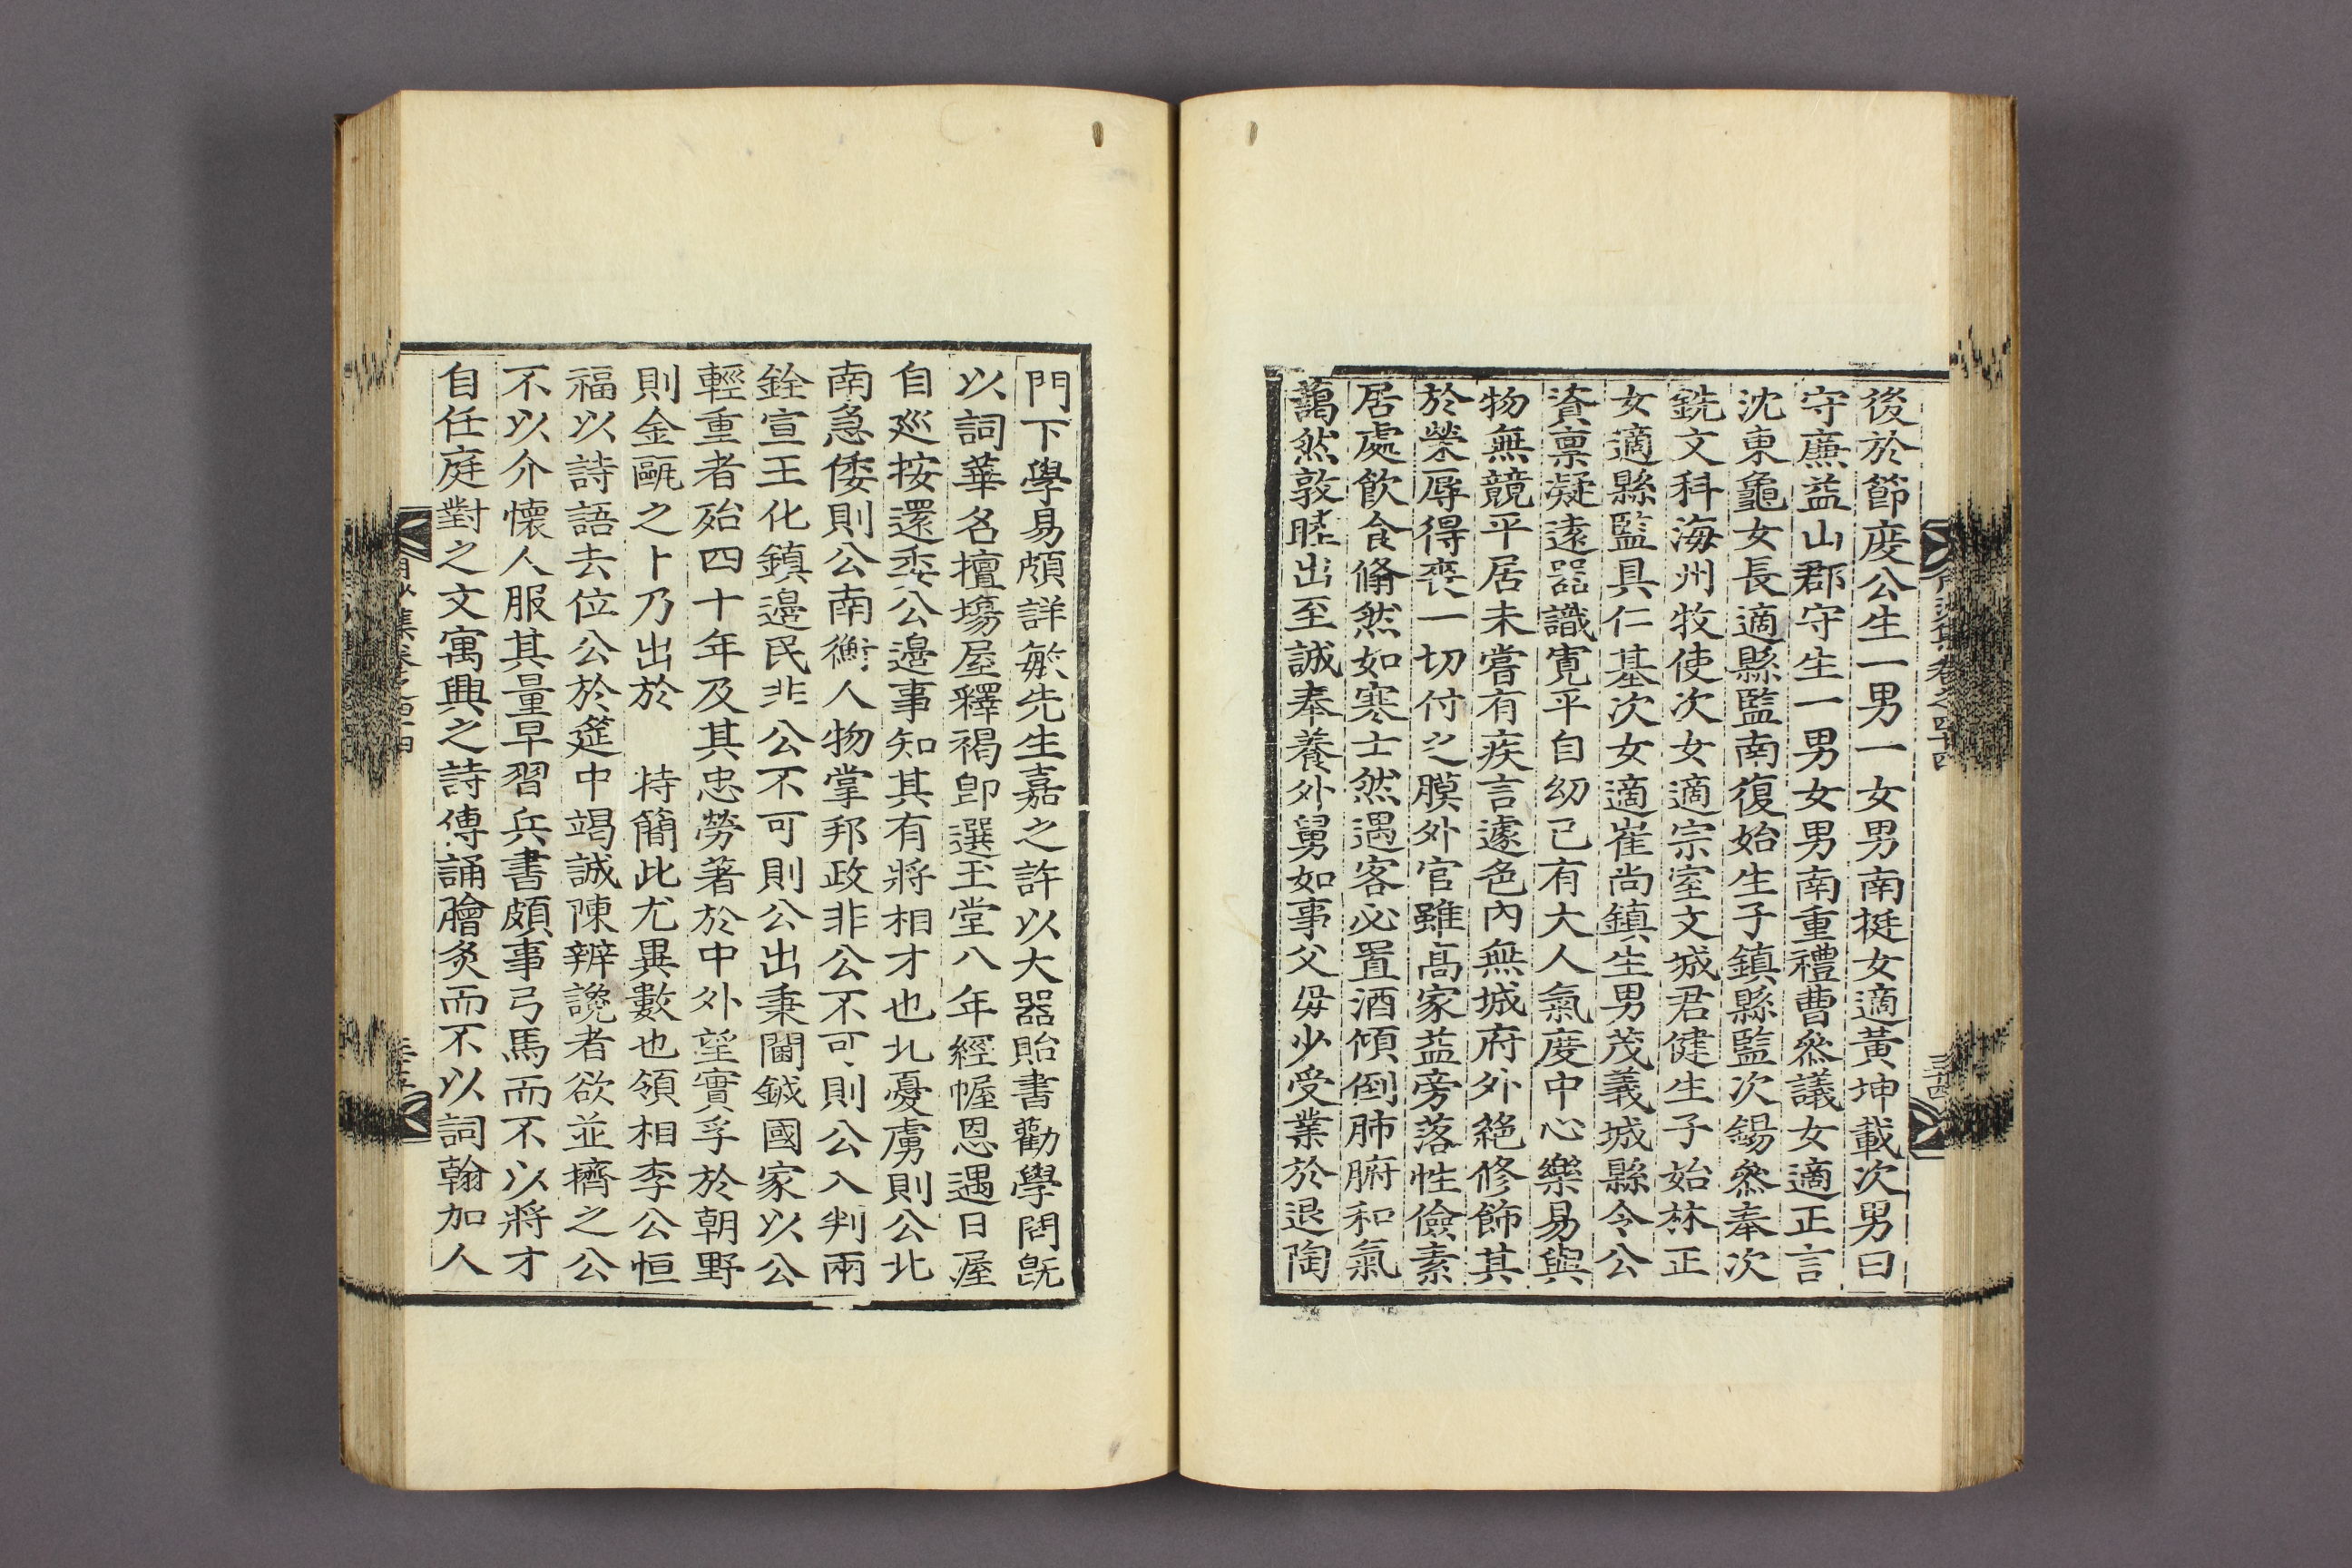 後於節度公生一男一女男南挺女適黃坤載次男曰
守廉益山郡守生一男女男南重禮曹叅議女適正言
沈東龜女長適縣監南復始生子鎮縣監次錫叅奉次
銑文科海州牧使次女適宗室文城君健生子始林正
女適縣監具仁基次女適崔尚鎮生男茂義城縣令公
資禀凝遠器識寬平自幼已有大人氣度中心樂易與
物無競平居未嘗有疾言遽色內無城府外絶修飾其
於榮辱得喪一切付之膜外官雖高家益旁落性儉素
居處飲食翛然如寒士然遇客必置酒傾倒肺腑和氣
藹然敦睦出至誠奉養外舅如事父母少受業於退陶
門下學易頗詳敏先生嘉之許以大器貽書勸學問旣
以詞華名擅塲屋釋褐卽選玉堂八年經幄恩遇日渥
自廵按還委公邊事知其有將相才也北憂虜則公北
南急倭則公南衡人物掌邦政非公不可則公入判兩
銓宣王化鎮邊民非公不可則公出秉閫鉞國家以公
輕重者殆四十年及其忠勞著於中外望實孚於朝野
則金甌之卜乃出於 特簡此尤異數也領相李公恒
福以詩語去位公於筵中竭誠陳辨讒者欲並擠之公
不以介懷人服其量早習兵書頗事弓馬而不以將才
自任庭對之文寓興之詩傳誦膾炙而不以詞翰加人